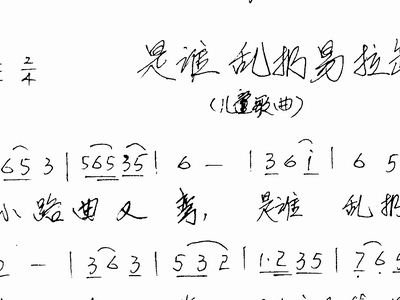 是谁乱扔易拉
2/4
(儿童歌曲)
6 5 3 | 5 6 5 3 5 | 6 — | 3 6 i | 6 5
小路曲又弯, 是谁 乱扔
2 — | 3 6 3 | 5 3 2 | 1·2 3 5 | 7 6 5